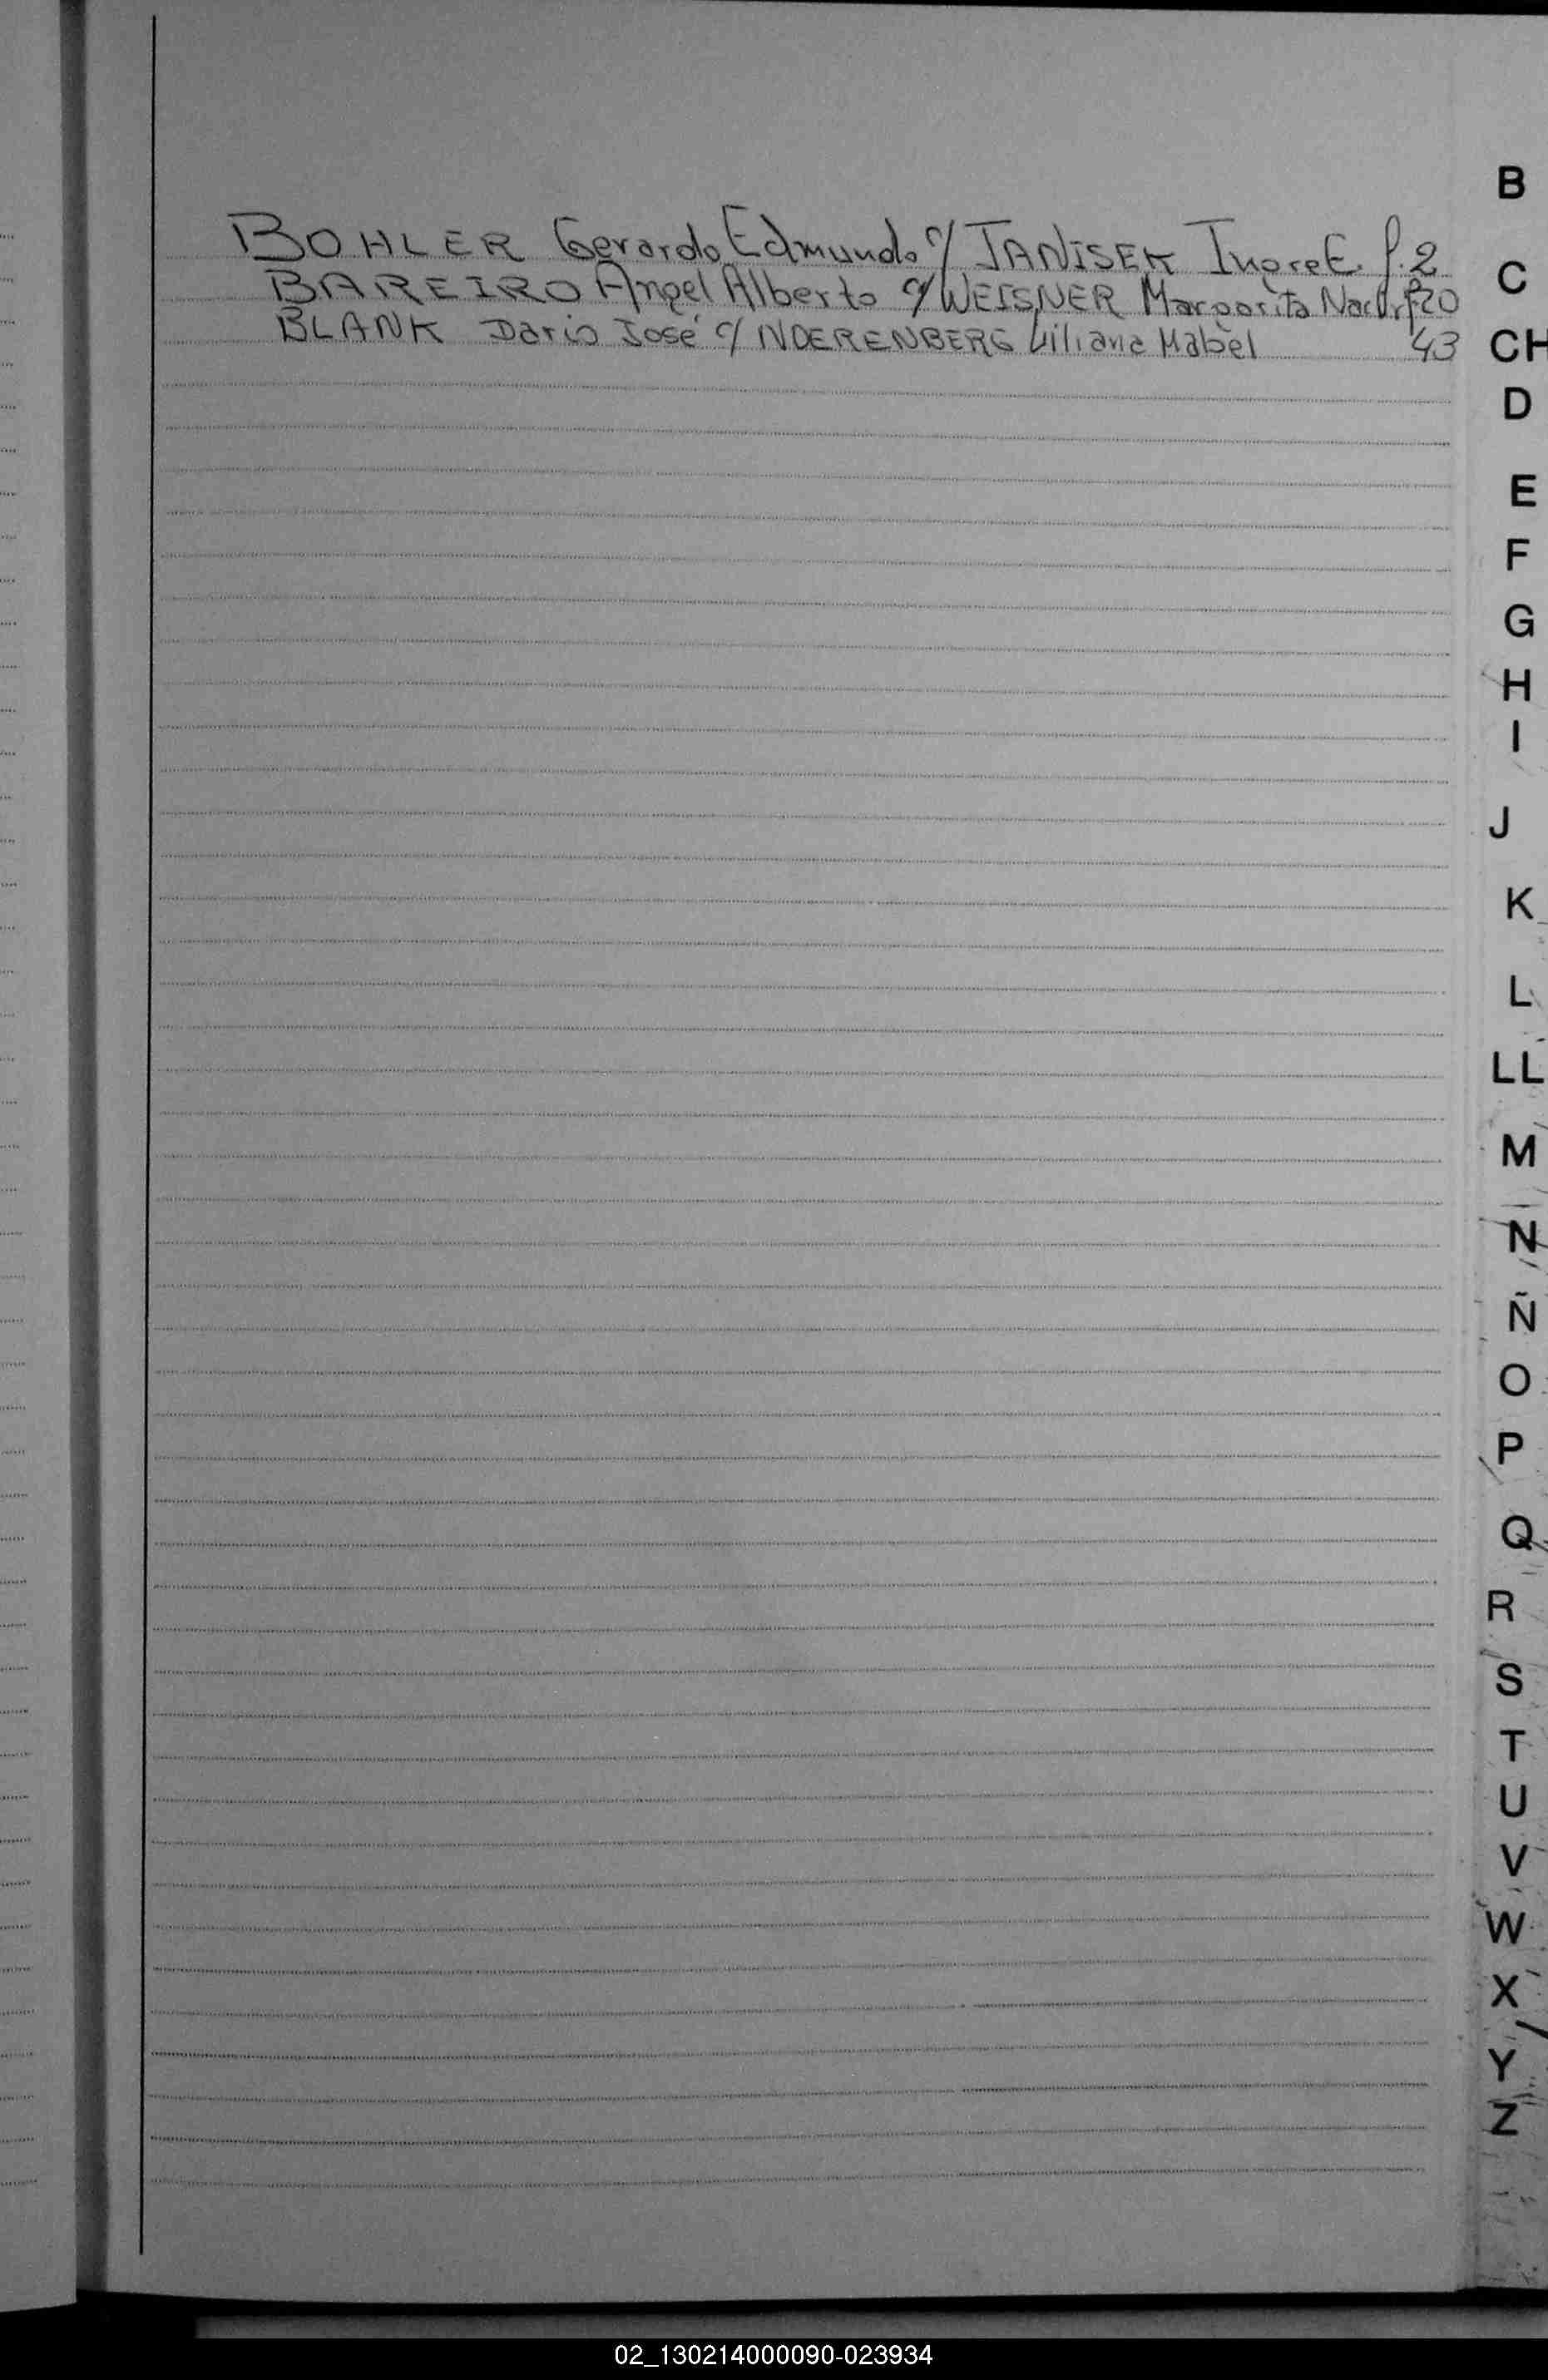 BOHLER Gerardo Edmundo c/ JANISEK E. f. 2
BAREIRO Angel Alberto c/ WEISNER Margarita f 20
BLANK Dario José c/ NDERENBERG Liliana Mabel 43
B
C
CH
D
E
F
G
H
I
J
K
L
LL
M
N
Ñ
O
P
Q
R
S
T
U
V
W
X
Y
Z
02_130214000090-023934